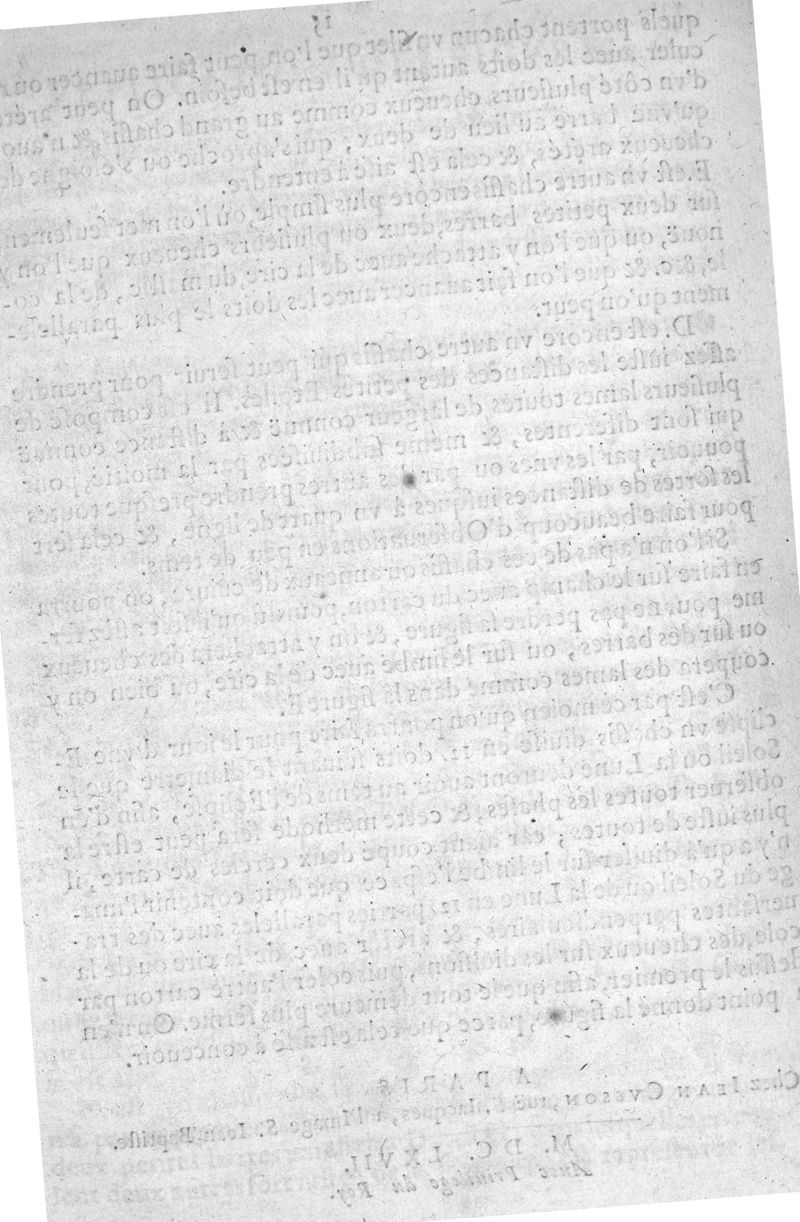 15
quels portent chacun vn filet que l'on peut faire auancer ou re-
culer auec les doits autant qu'il en est besoin. On peut arété
d'vn côté plusieurs cheueux comme au grand chassis, & n'auoir
qu'vne barre au lieu de deux, qui s'aproche ou s'éloigne de
cheueux arétés, & cela est aisé à entendre.
E. est vn autre chassis encore plus simple, où l'on met seulement
sur deux petites barres, deux ou plusieurs cheueux que l'on y
nouë, ou que l'on y attache auec de la cire, du mastic, de la co-
le, &c. & que l'on fait auancer auec les doits le plus parallele-
ment qu'on peut.
D. est encore vn autre chassis qui peut seruir pour prendre
assez iuste les distances des petites Etoiles. Il est composé de
plusieurs lames toutes de largeur connuë & à distance connuë
qui sont differentes, & même subdiuisées par la moitié, pour
pouuoir, par les vnes ou par les autres prendre presque toutes
les sortes de distances iusques à vn quart de ligne, & cela sert
pour faire beaucoup d'Obseruations en peu de tems.
Si l'on n'a pas de ces chassis ou anneaux de cuiure, on pourra
en faire sur le champ auec du carton, pourueu qu'il soit assez fer-
me pour ne pas perdre sa figure, & on y attachera des cheueux
ou sur des barres, ou sur le limbe auec de la cire, ou bien on y
coupera des lames comme dans la figure E.
C'est par ce moien qu'on pourra faire pour le iour d'vne E-
clipse vn chassis, diuisé en 12. doits suiuant le diametre que le
Soleil ou la Lune deuront auoir au tems de l'Eclipse, afin d'en
obseruer toutes les phases; & cette methode sera peut estre la
plus iuste de toutes; car aiant coupé deux cercles de carte, il
n'y a qu'à diuiser sur le limbe l'espace que doit contenir l'ima-
ge du Soleil ou de la Lune en 12. parties paralleles auec des tra-
uersantes perpendiculaires, & aréter auec de la cire ou de la
cole, des cheueux sur les diuisions, puis coler l'autre carton par
dessus le premier, afin que le tout demeure plus ferme. On n'en
a point donné la figure, parce que cela est aisé à conceuoir.
A PARIS
Chez IEAN CVSSON, ruë S. Iacques, à l'Image S. Iean Baptiste.
M. DC. LXVII.
Auec Priuilege du Roy.